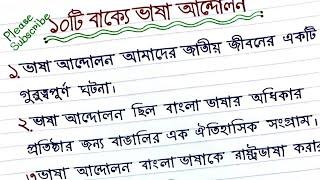 Please Subscribe
১০টি বাক্যে ভাষা আন্দোলন
১. ভাষা আন্দোলন আমাদের জাতীয় জীবনের একটি
গুরুত্বপূর্ণ ঘটনা।
২. ভাষা আন্দোলন ছিল বাংলা ভাষার অধিকার
প্রতিষ্ঠার জন্য বাঙালির এক ঐতিহাসিক সংগ্রাম।
৩. ভাষা আন্দোলন বাংলা ভাষাকে রাষ্ট্রভাষা করার